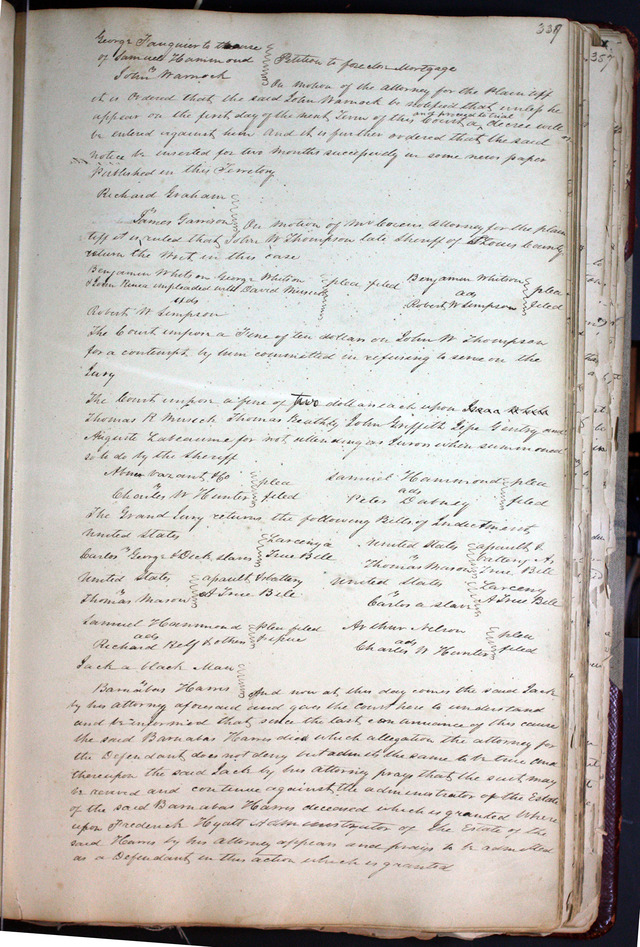 339
George Fauquier to the use
of Samuel Hammond Petition to foreclose Mortgage
vs
John Warnock On motion of the Attorney for the Plaintiff
it is Ordered that the said John Warnock be notified that unless he
and proceed to trial
appear on the first day of the next Term of this Court a decree will
be entered against him And it is further ordered that the said
notice be inserted for two months successively in some news paper
Published in this Territory
Richard Graham
vs
James Garrison On motion of Mr Attorney for the plain
tiff it is ruled that John W Thompson late Sheriff of St Louis County
return the Writ in this case
Benjamin Whitson George Whitson plea filed Benjamin Whitson plea
& John impleaded with David ads filed
ads Robert W Simpson
Robert W Simpson
The Court impose a Fine of ten dollars on John W Thompson
for a contempt by him committed in refusing to serve on the
Jury
The Court impose a fine of two dollars each upon
Thomas R Musick Thomas John Griffith Gentry and
Auguste Labeaume for not attending as Jurors when summoned
so to do by the Sheriff
plea Samuel Hammond plea
vs filed ads filed
Charles W Hunter Peter Dabney
The Grand Jury returns the following Bills of Indictment
United States Larceny a United States assault &
vs True Bill vs battery A
Carlos George & Dick slaves Thomas Mason True Bill
United States assault & battery United States Larceny
vs A True Bill vs A True Bill
Thomas Mason Carlos a slave
Samuel Hammond plea filed Arthur Nelson plea
ads issue ads filed
Richard Relf & others Charles W Hunter
Jack a black Man
vs
Barnabas Harris And now at this day comes the said Jack
by his attorney aforesaid and gives the Court here to understand
and be informed that since the last continuance of this cause
the said Barnabas Harris died which allegation the attorney for
the Defendant does not deny but admits the same to be true and
thereupon the said Jack by his Attorney prays that the suit may
be revived and continue against the administrator of the Estate
of the said Barnabas Harris deceased which is granted Where
upon Frederick Hyatt Administrator of the Estate of the
said Harris by his Attorney appears and prays to be admitted
as a Defendant in this action which is granted
357